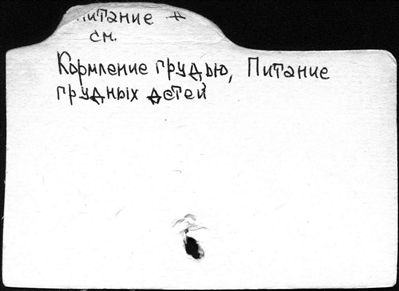 питание *
см.
Кормление грудью, Питание
грудных детей